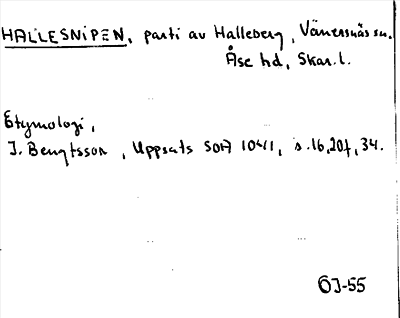 HALLESNIPEN, parti av Halleberg, Vänersnäs sn.
Åse hd, Skar. l.
Etymologi,
J. Bengtsson, Uppsats SOÄ 10411, s. 16, 20f, 34.
ÖJ-55